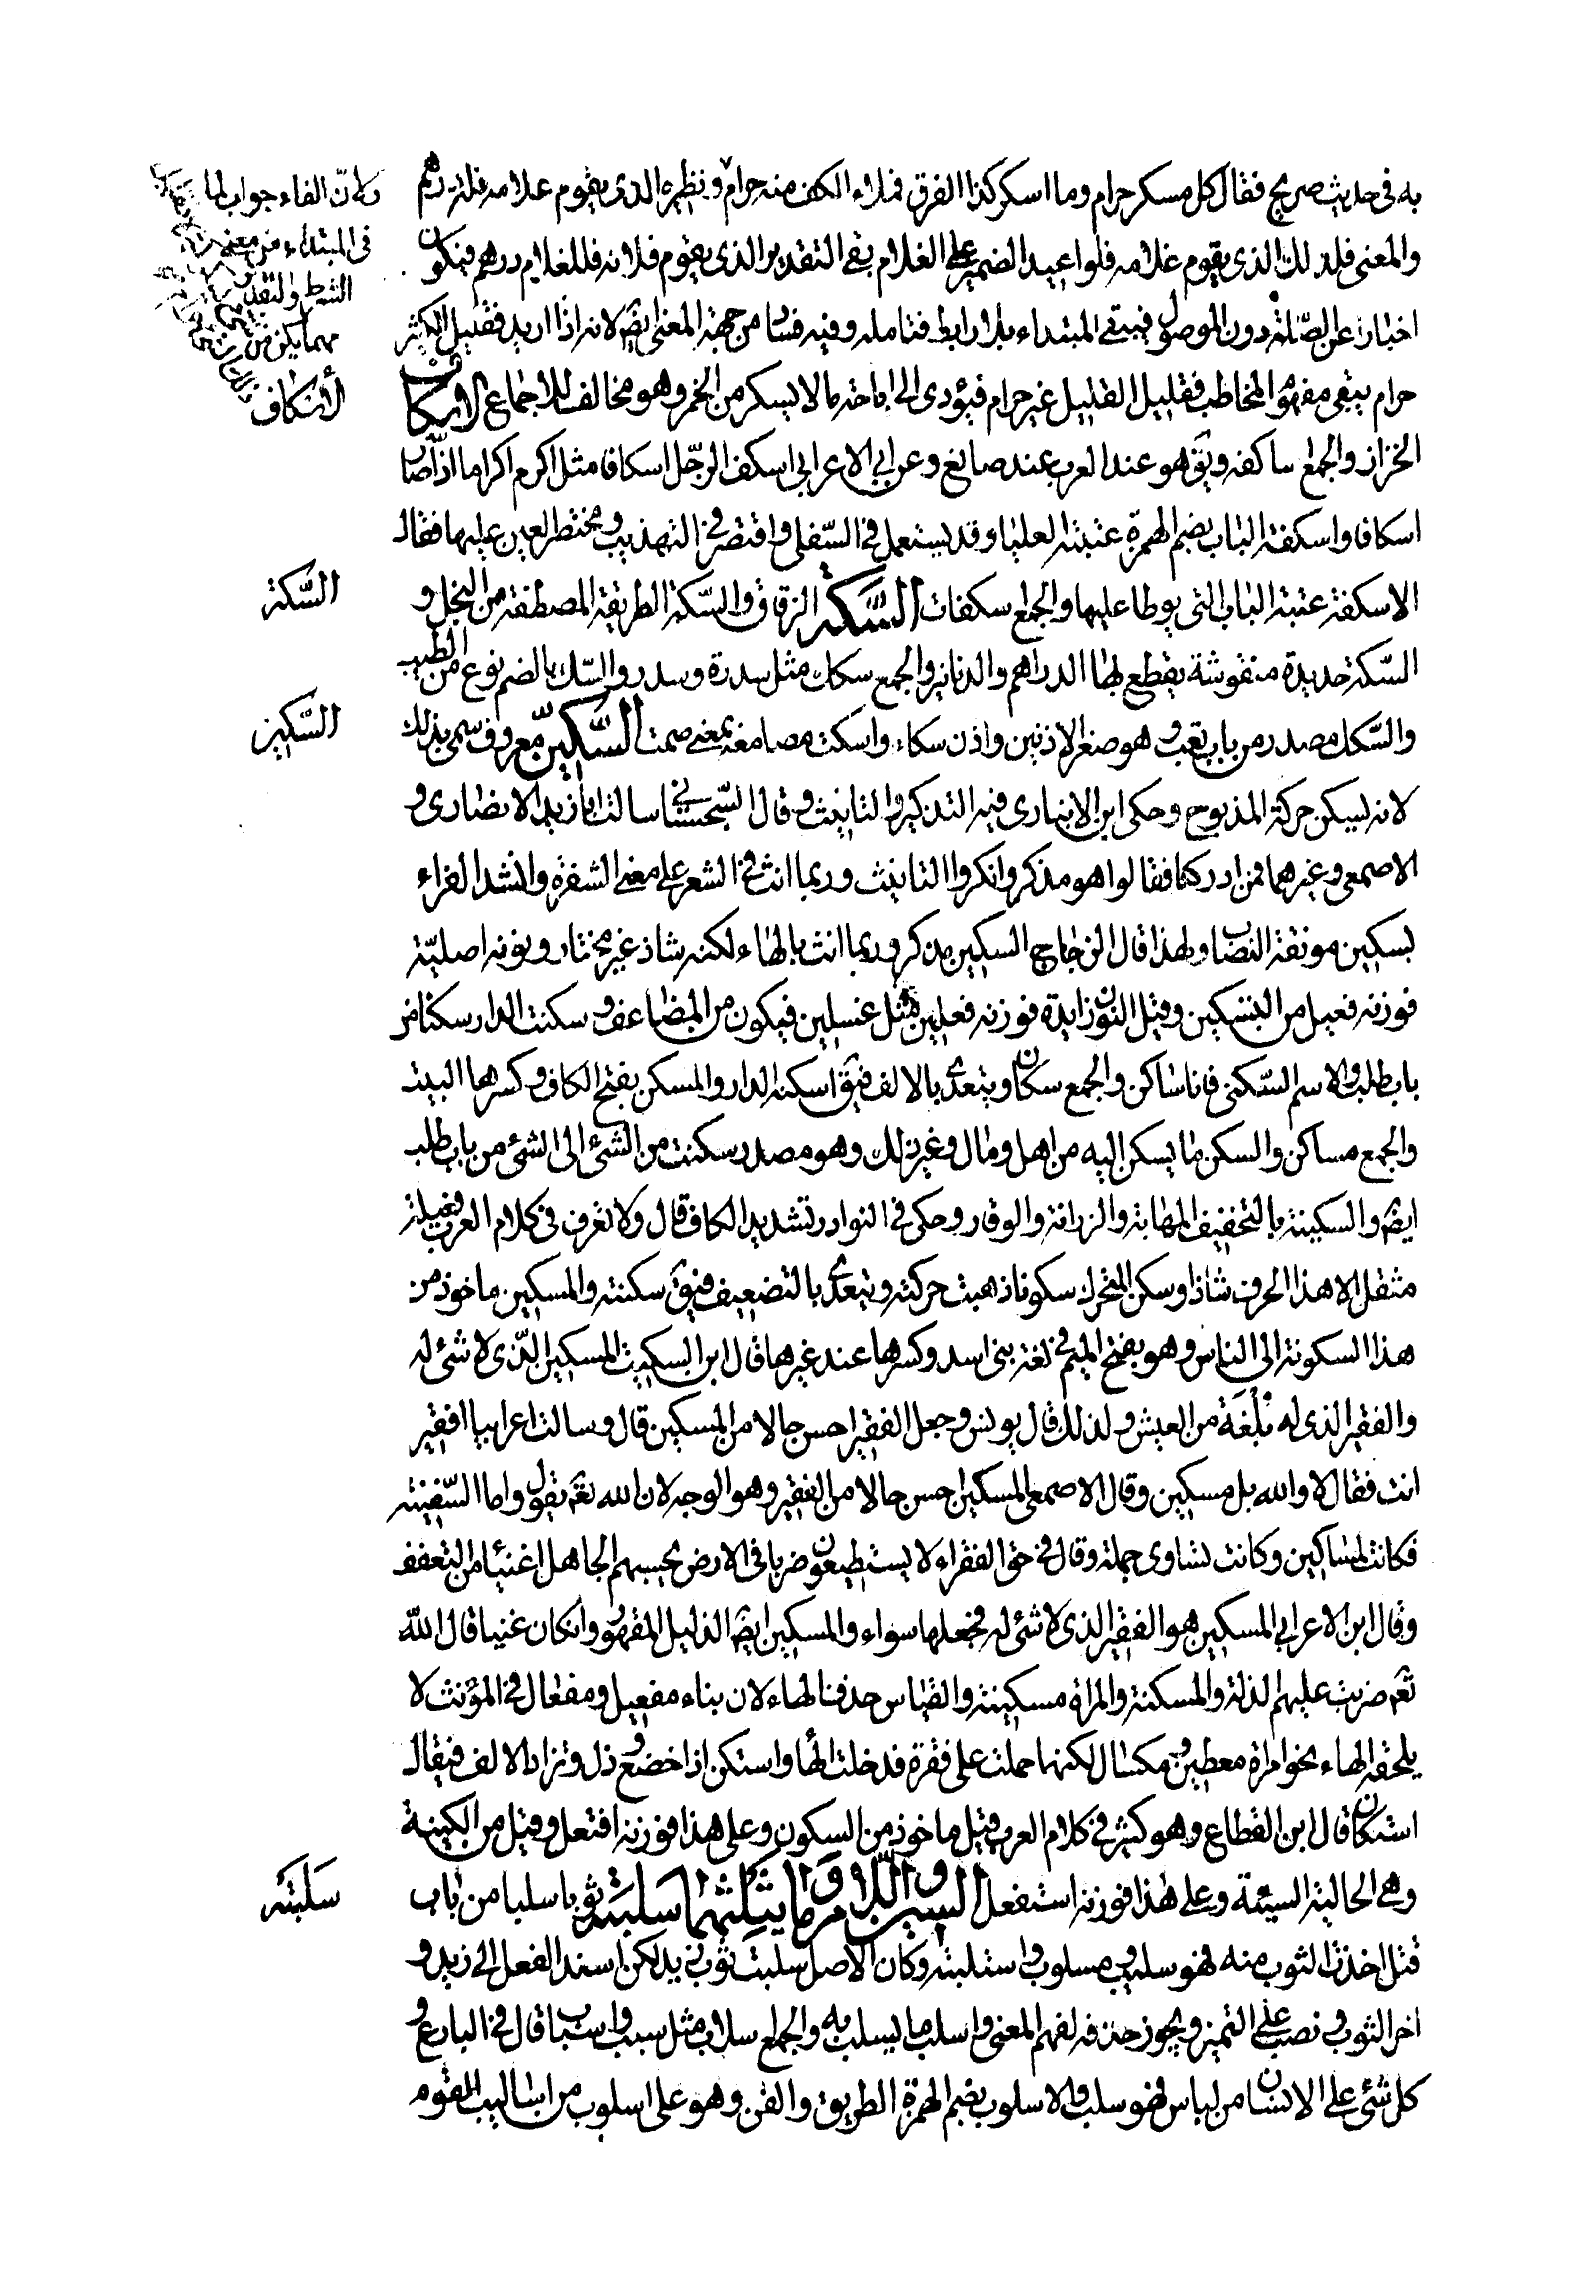 به فى حديث صريح فقال كل مسكر حرام وما اسكر كذا الفرق فملاء الكف منه حرام ونظيره الذى يقوم غلامه فله درهم
والمعنى فلذلك الذى يقوم غلامه فلو اعيد الضمير على الغلام بقى التقدير الذى يقوم غلامه فللغلام درهم فيكون
اخبارا عن الصّلة دون الموصول فيبقى المبتداء بلا رابط فتامله وفيه فساد من جهة المعنى ايضً لانه اذا اريد فقليل الكثير
حرام يبقى مفهوم المخاطب فقليل القليل غير حرام فيؤدى الى اباحة ما لا يسكر من الخمر وهو مخالف للاجماع الاسكاف
الخراز والجمع اساكفة ويقَ هو عند العرب عند صانع وعن ابن الاعرابى اسكف الرّجل اسكافا مثل اكرم اكراما اذا صار
اسكافا واسكفة الباب بضم الهمزة عتبته العليا وقد يستعمل فى السّفلى واقتصر فى التهذيب ومختصر العين عليها فقال
الاسكفة عتبة الباب التى يوطا عليها والجمع اسكفات السّكة الزقاق والسّكة الطريقة المصطفة من النخل و
السّكة حديدة منقوشة يطبع بها الدراهم والدنانير والجمع سكك مثل سدرة وسدر والسّك بالضم نوع من الطيب
والسّكك مصدر من باب تعب وهو صغر الاذنين واذن سكاء واستكت مسامعه بمعنى صمت السّكّين معروف سمى بذلك
لانه يسكن حركة المذبوح وحكى ابن الانبارى فيه التذكير والتانيث وقال السّجستانى سالت ابا زيد الانصارى و
الاصمعى وغيرهما ممن ادركنا فقالوا هو مذكر وانكروا التانيث وربما انث فى الشعر على معنى الشفرة وانشد الفراء
بسكين موثقة النصاب ولهذا قال الزجاج السكين مذكر وربما انث بالهاء لكنه شاذ غير مختار ونونه اصليّة
فوزنه فعيل من التسكين وقيل النون زايدة فوزنه فعلين مثل غسلين فيكون من المضاعف وسكنت الدار سكنا من
باب طلب والاسم السّكنى فانا ساكن والجمع سكان ويتعدى بالالف فيقَ اسكنته الدار والمسكن بفتح الكاف وكسرها البيت
والجمع مساكن والسكن ما يسكن اليه من اهل ومال وغير ذلك وهو مصدر سكنت من الشئ الى الشئ من باب طلب
ايضً والسكينة بالتخفيف المهابة والرزانة والوقار وحكى فى النوادر تشديد الكاف قال ولا نعرف فى كلام العرب فعيلة
مثقل الا هذا الحرف شاذا وسكن المتحرك سكونا ذهبت حركته ويتعدى بالتضعيف فيقَ سكنته والمسكين ماخوذ من
هذا السكونه الى الناس وهو بفتح الميم فى لغة بنى اسد وكسرها عند غيرها قال ابن السكيت المسكين الذّى لا شئ له
والفقير الذى له بُلْغَة من العيش ولذلك قال يونس وجعل الفقير احسن حالا من المسكين قال وسالت اعرابيا افقير
انت فقال لا والله بل مسكين وقال الاصمعى المسكين احسن حالا من الفقير وهو الوجه لان الله تعَ يقول واما السّفينة
فكانت لمساكين وكانت تساوى جملة وقال فى حق الفقراء لا يستطيعون ضربا فى الارض يحسبهم الجاهل اغنيا من التعفف
وقال ابن الاعرابى المسكين هو الفقير الذى لا شئ له فجعلها سواء والمسكين ايضً الذليل المقهور وان كان غنيا قال الله
تعَ ضربت عليهم الذلة والمسكنة والمراة مسكينة والقياس حذف الهاء لان بناء مفعيل ومفعال فى المؤنث لا
يلحقه الهاء نحو امراة معطير ومكسال لكنها حملت على فقيرة فدخلت الهأ واستكن اذا خضع وذل وتزاد الالف فيقال
استكان قال ابن القطاع وهو كثير فى كلام العرب قيل ماخوذ من السكون وعلى هذا فوزنه افتعل وقيل من الكينة
وهى الحالة السيئة وعلى هذا فوزنه استفعل السين واللام وما يثلثهما سلبته ثوبا سلبا من باب
قتل اخذت الثوب منه فهو سليب ومسلوب واستلبته وكان الاصل سلبت ثوب زيد لكن اسند الفعل الى زيد و
اخر الثوب ونصب على التميز ويجوز حذفه لفهم المعنى واسلب ما يسلب به والجمع سلاب مثل سبب واسباب قال فى البارع و
كل شئ على الانسان من لباس فهو سلب والاسلوب بضم الهمزة الطريق والفن وهو على اسلوب من اساليب القوم
ولانّ الفاء جواب لما
فى المبتداء من معنى
الشرط والتقدير
مهما يكن من شئ
الأسكاف
السّكة
السّكين
سَلبتَه